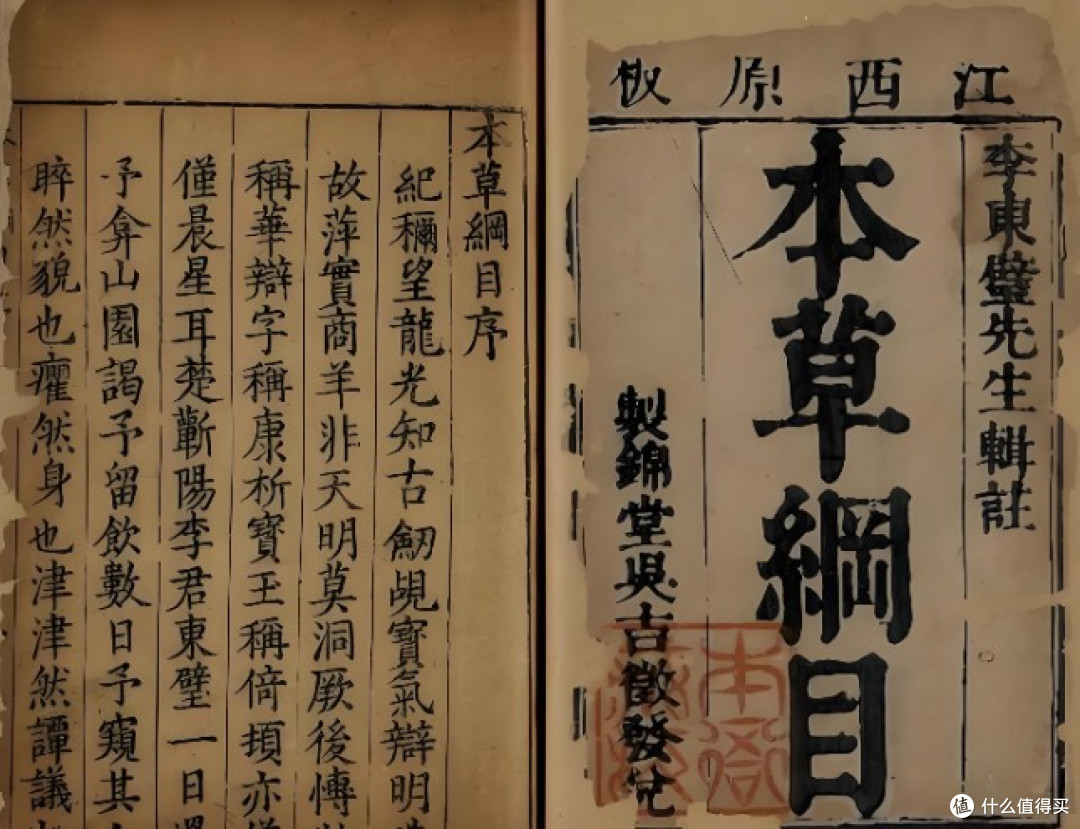 江西原板
李東璧先生輯註
本草綱目
製錦堂吳吉徵發兌
本草綱目序
紀穪望龍光知古劒覘寶氣辯明
故萍實商羊非天明莫洞厥後慱
稱華辯字稱康析寶玉稱倚頓亦
僅晨星耳楚蘄陽李君東璧一日
予弇山園謁予留飲數日予窺其
睟然貌也癯然身也津津然譚議
值 什么值得买